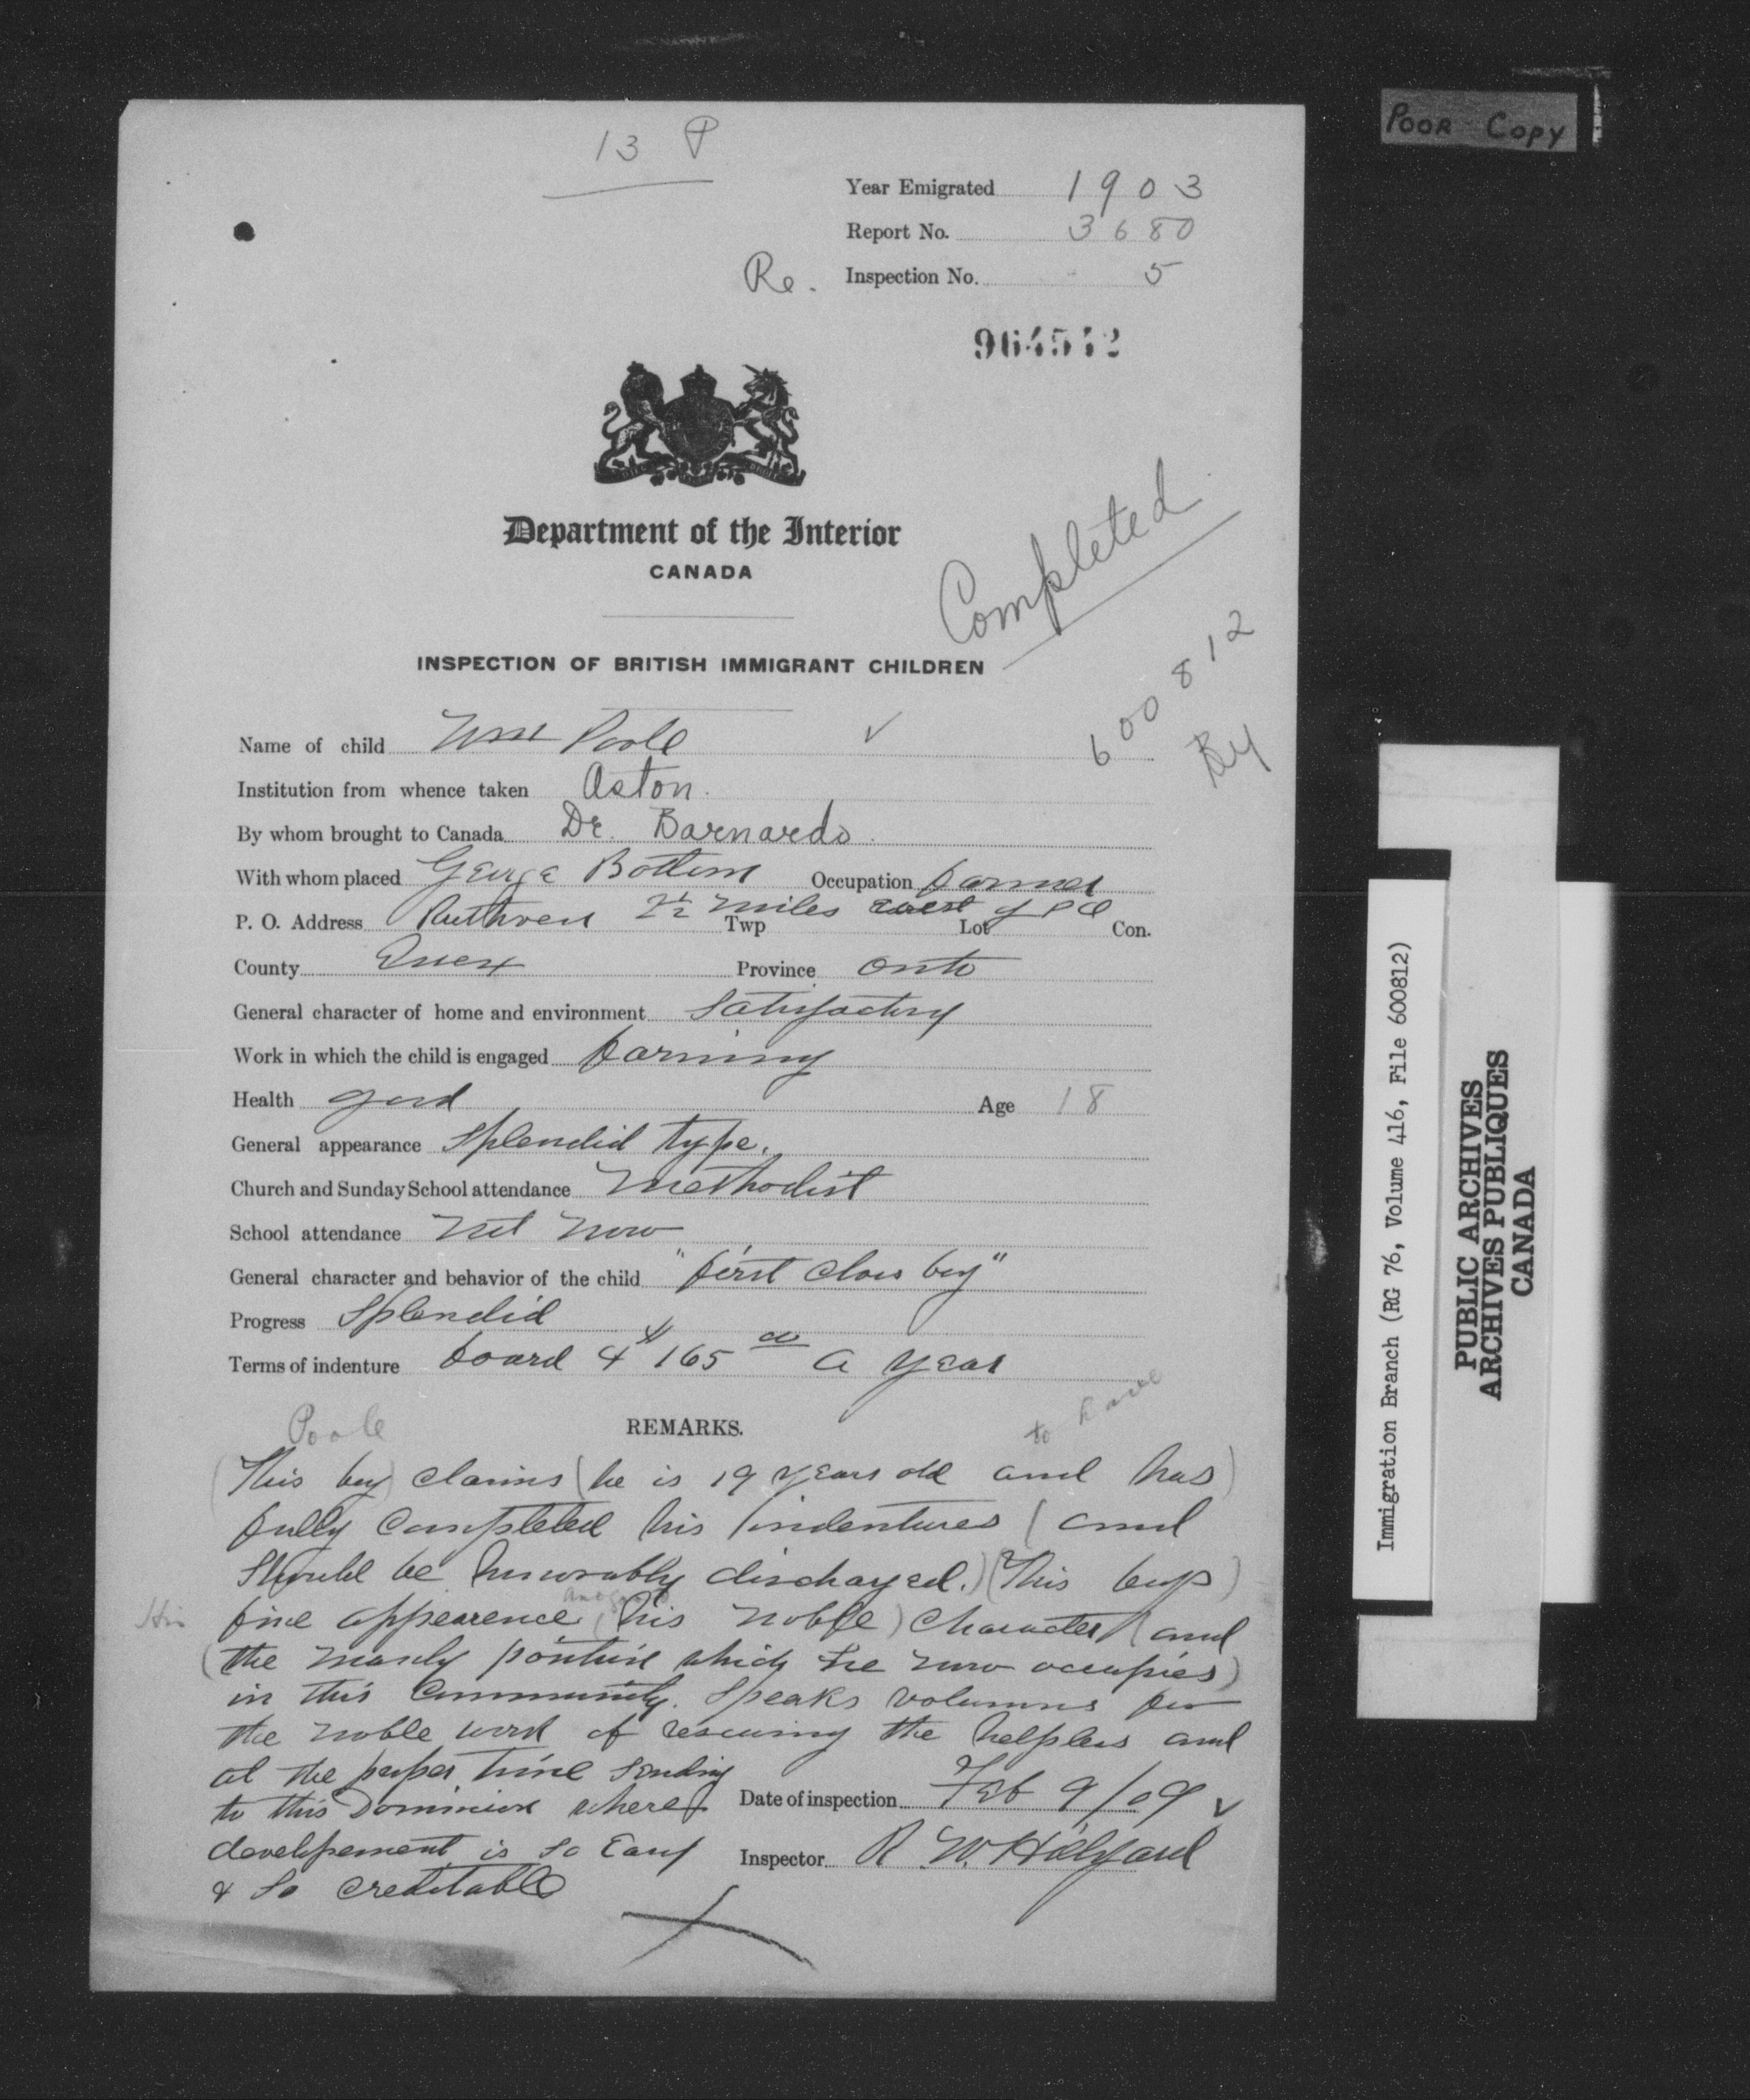 POOR COPY
13 P
Year Emigrated 1903
Report No. 3680
Re. Inspection No. 5
964542
Department of the Interior
CANADA
Completed
600812
By
INSPECTION OF BRITISH IMMIGRANT CHILDREN
Name of child Wm Poole ✓
Institution from whence taken Aston.
By whom brought to Canada Dr. Barnardo.
With whom placed George Bottom Occupation farmer
P. O. Address Ruthven 2½ miles west of PO Twp Lot Con.
County Essex Province Onto
General character of home and environment Satisfactory
Work in which the child is engaged farming
Health good Age 18
General appearance Splendid type.
Church and Sunday School attendance Methodist
School attendance Not now
General character and behavior of the child "first class boy"
Progress Splendid
Terms of indenture board & $165 00 a year
Poole REMARKS. to have
(This boy) claims (he is 19 years old and has)
fully completed his indentures (and
should be honorably discharged.) (This boys)
His fine appearence, (his noble) character (and
(the manly position which he now occupies)
in this Community. Speaks volumns for
the noble work of rescuing the helpless and
at the proper time sending
to this Dominion where
developement is so Easy
& so creditable
Date of inspection Feb 9/09 ✓
Inspector R. W. Hilyard
Immigration Branch (RG 76, Volume 416, File 600812)
PUBLIC ARCHIVES
ARCHIVES PUBLIQUES
CANADA